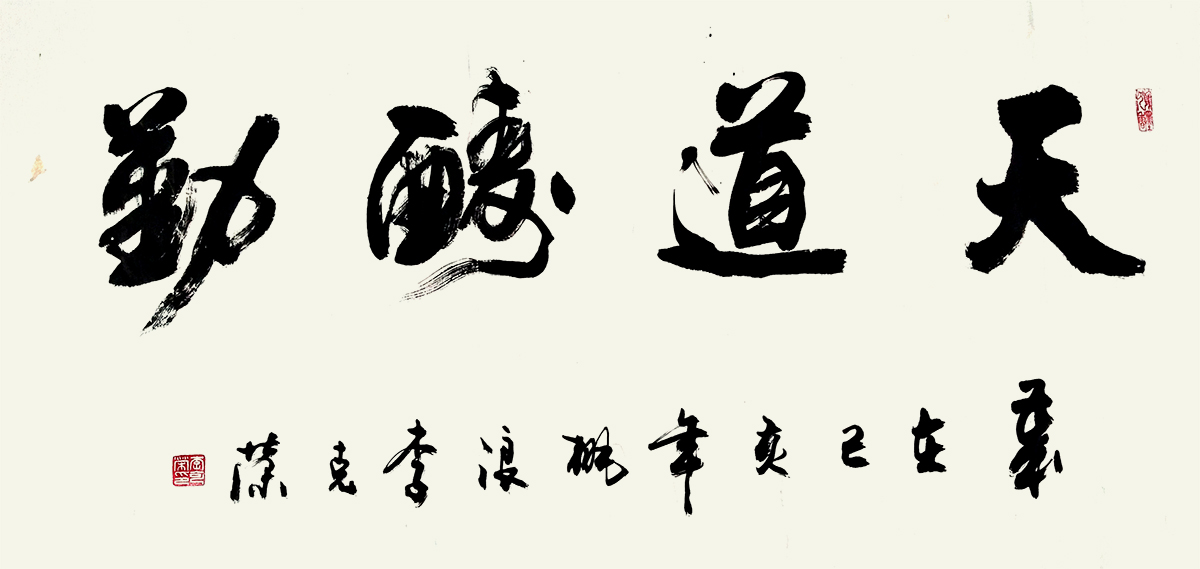 天道醻勤
歲在己亥年桃浪李克荣